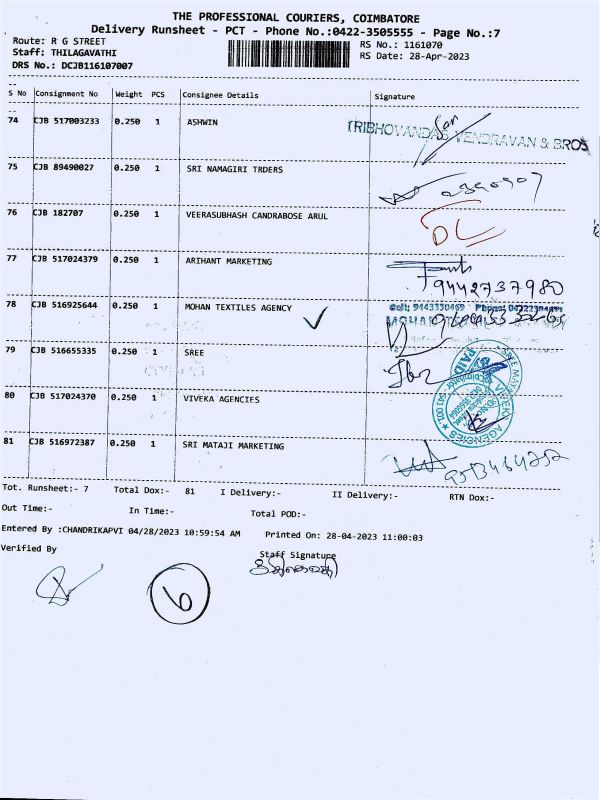 THE PROFESSIONAL COURIERS, COIMBATORE
Delivery Runsheet - PCT - Phone No.:0422-3505555 - Page No.:7
Route: R G STREET
Staff: THILAGAVATHI
DRS No.: DCJB116107007
RS No.: 1161070
RS Date: 28-Apr-2023
S No Consignment No Weight PCS Consignee Details Signature
74 CJB 517003233 0.250 1 ASHWIN
TRIBHOVANDAS VENDRAVAN & BROS
75 CJB 89490027 0.250 1 SRI NAMAGIRI TRDERS
76 CJB 182707 0.250 1 VEERASUBHASH CANDRABOSE ARUL
77 CJB 517024379 0.250 1 ARIHANT MARKETING
9442737980
78 CJB 516925644 0.250 1 MOHAN TEXTILES AGENCY
79 CJB 516655335 0.250 1 SREE
80 CJB 517024370 0.250 1 VIVEKA AGENCIES
PAID
AGENCIES
81 CJB 516972387 0.250 1 SRI MATAJI MARKETING
Tot. Runsheet:- 7 Total Dox:- 81 I Delivery:- II Delivery:- RTN Dox:-
Out Time:- In Time:- Total POD:-
Entered By :CHANDRIKAPVI 04/28/2023 10:59:54 AM Printed On: 28-04-2023 11:00:03
Verified By Staff Signature
6